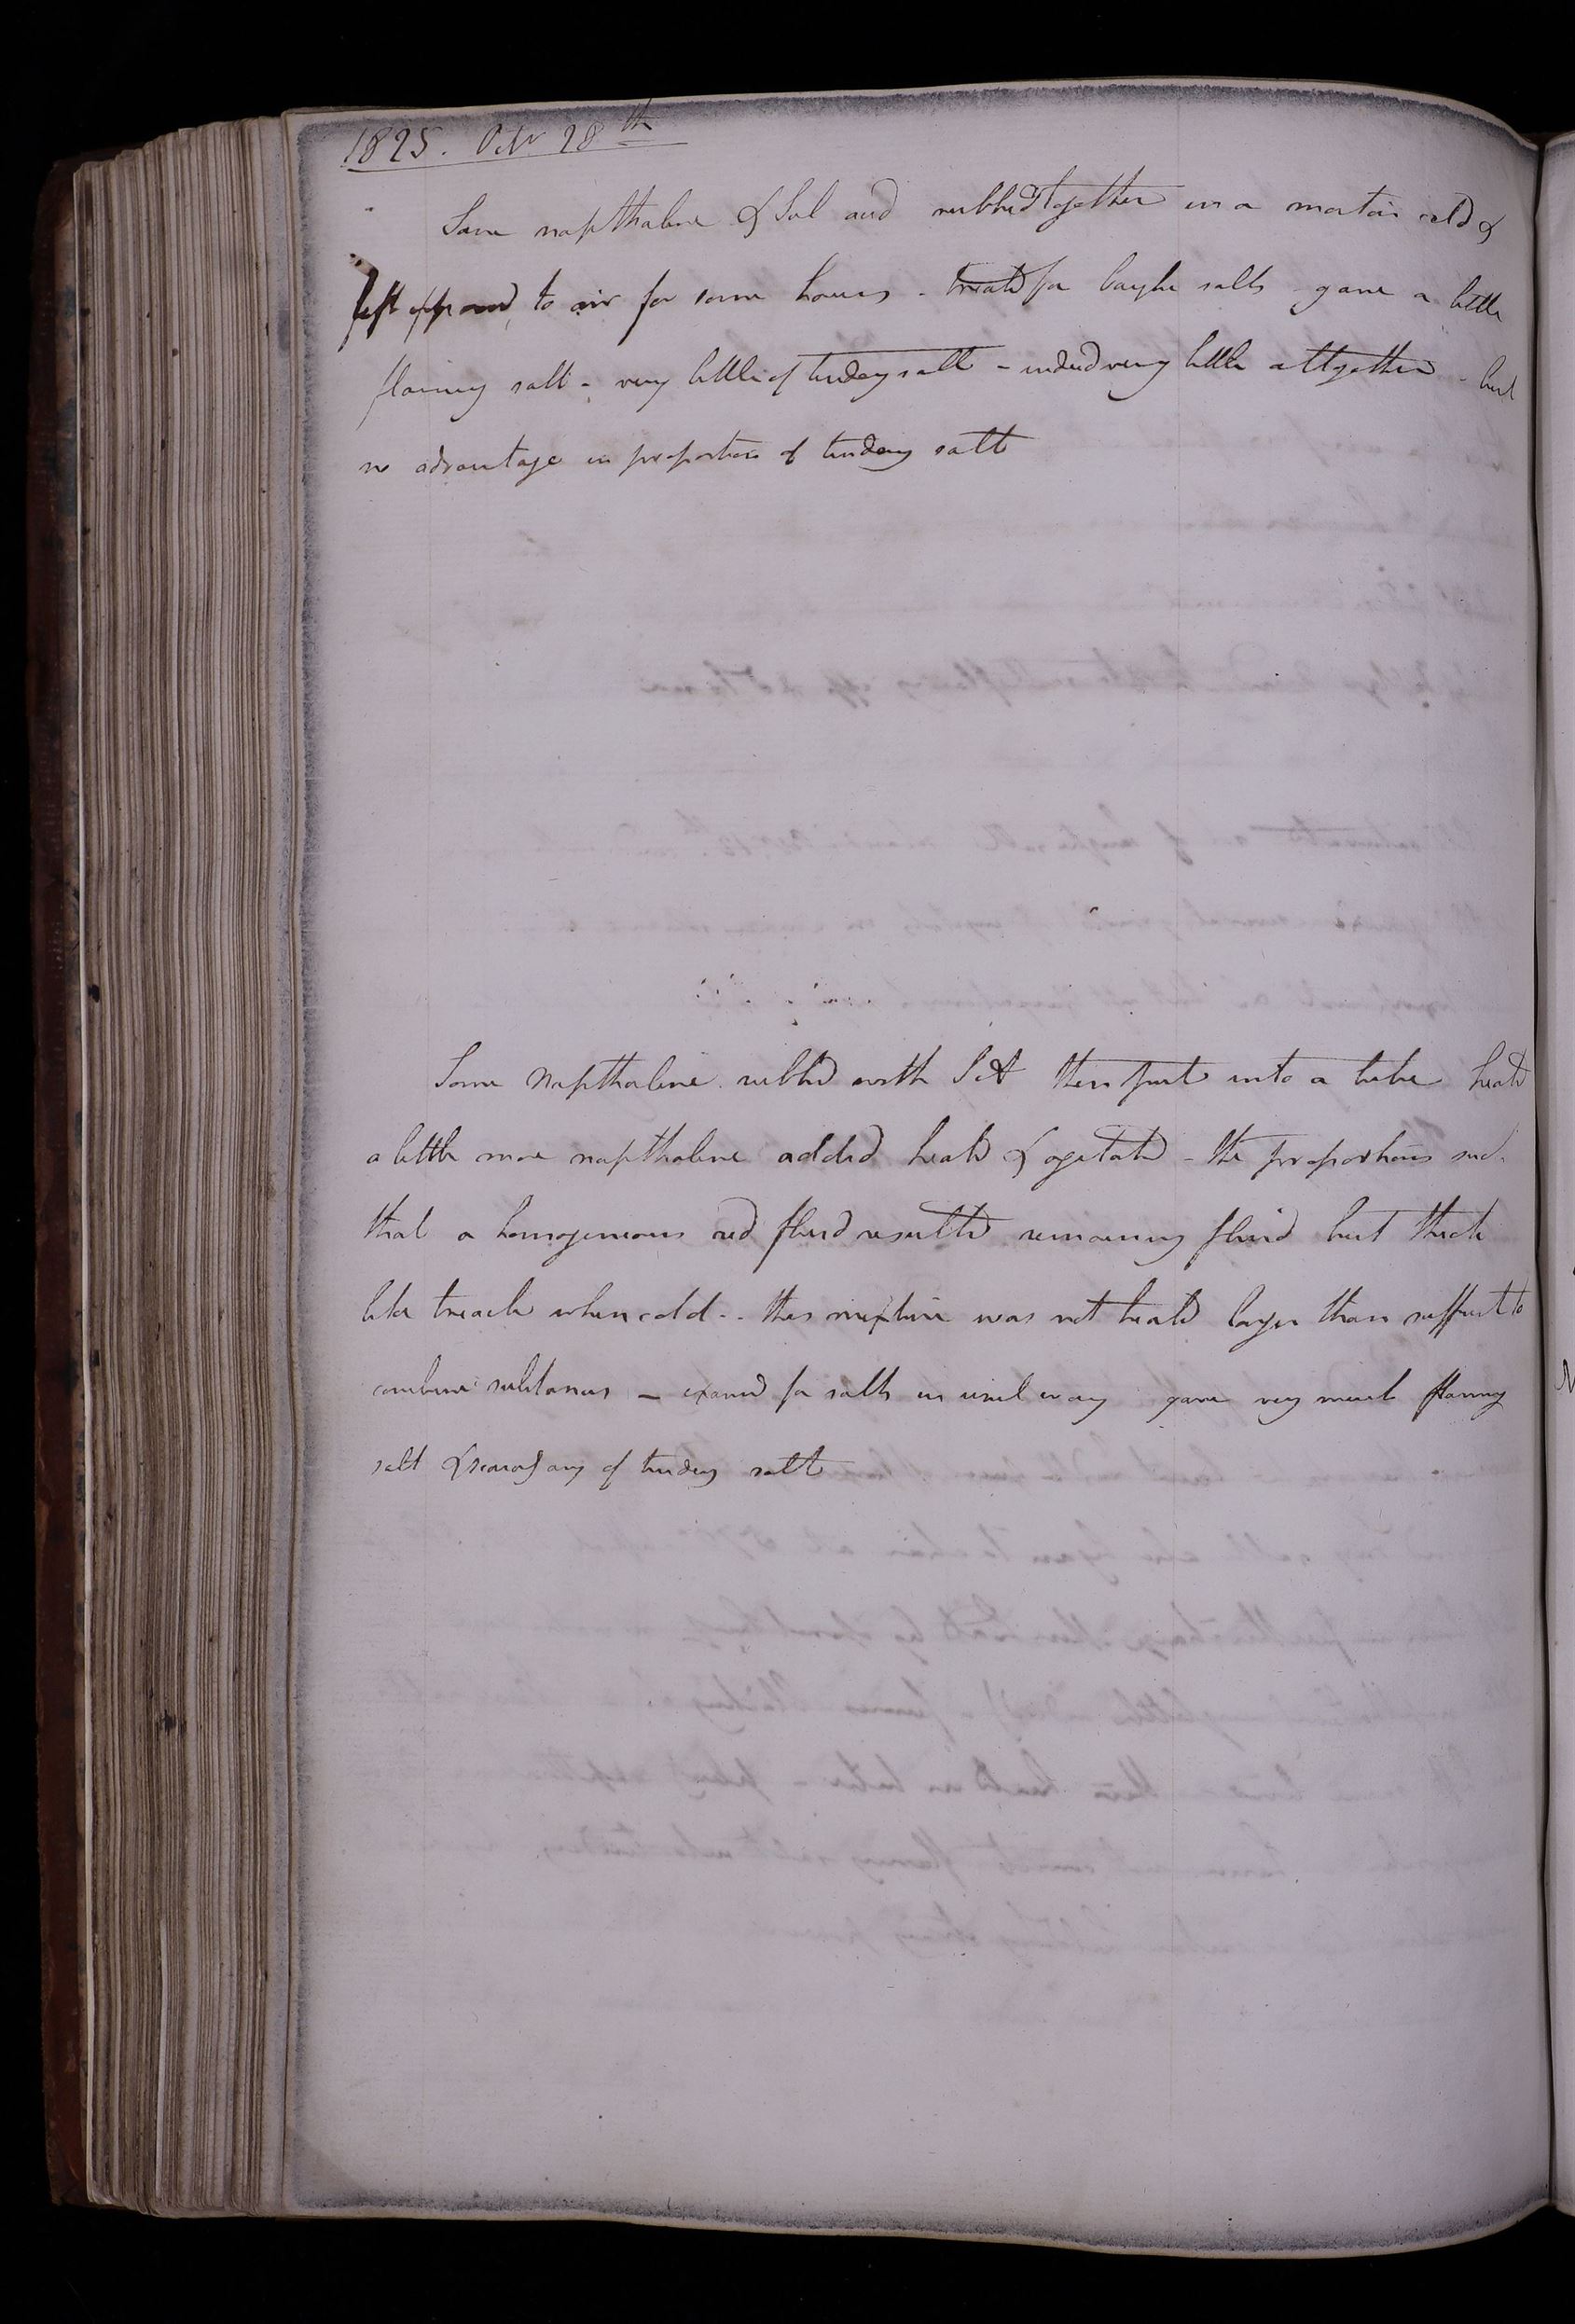 1825. Octr 28th
Some napthaline & Sul acid rubbed together in a mortar cold &
left exposed to air for some hours - treated for baryte salts gave a little
flaming salt - very little of tindery salt - indeed very little altogether - but
no advantage in proportion of tindery salt
Some Napthaline rubbed with S A then put into a tube heated
a little more napthaline added heated & agitated - the proportions such
that a homogeneous red fluid resulted remaining fluid but thick
like treacle when cold - this mixture was not heated longer than suffict to
combine substances - examd for salts in usual way gave very much flaming
salt & scarcely any of tindery salt